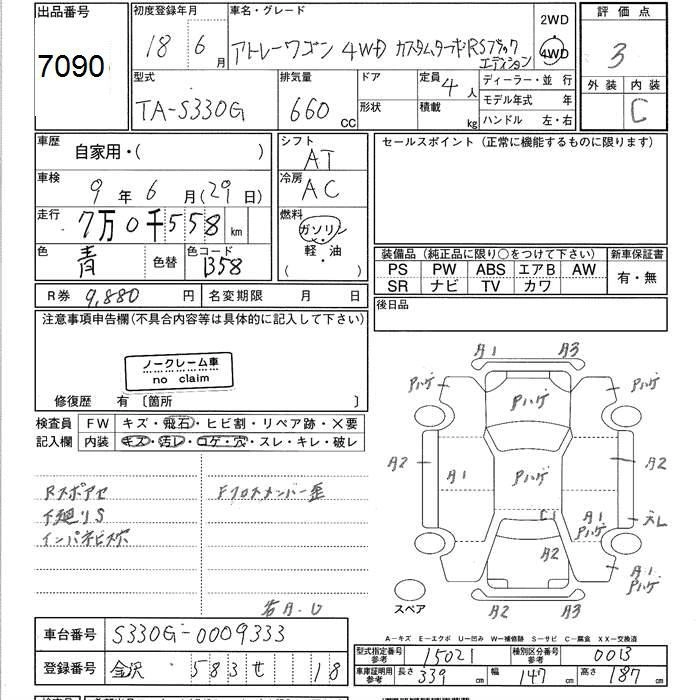 出品番号
7090
初度登録年月
18 年 6 月
車名・グレード
アトレーワゴン 4WD カスタムターボRSブラックエディション
2WD
4WD
評価点
3
外装 内装
C
型式
TA-S330G
排気量
660 CC
ドア
形状
定員 4 人
積載 kg
ディーラー・並行
モデル年式 年
ハンドル 左・右
車歴
自家用・( )
車検
9 年 6 月(29 日)
走行
7万0千558 km
色
青 色替
色コード
B58
シフト
AT
冷房
AC
燃料
ガソリン
軽・油
( )
セールスポイント(正常に機能するものに限ります)
装備品(純正品に限り○をつけて下さい)
新車保証書
PS PW ABS エアB AW
SR ナビ TV カワ
有・無
後日品
R券 9,880 円
名変期限 月 日
注意事項申告欄(不具合内容等は具体的に記入して下さい)
ノークレーム車
no claim
修復歴 有〔箇所 〕
検査員
記入欄
FW キズ・飛石・ヒビ割・リペア跡・×要
内装 キズ・汚レ・コゲ・穴・スレ・キレ・破レ
Rスポアセ
下廻りS
インパネビスホ
Fクロスメンバー歪
A1 A3
Pハゲ Pハゲ Pハゲ
A2 A1 Pハゲ A2
C1 A1 Pハゲ スレ
A2
A1 Pハゲ
A2 A3
スペア
A-キズ E-エクボ U-凹み W-補修跡 S-サビ C-腐食 XX-交換済
車台番号
S330G-0009333
登録番号
金沢 583 せ 18
型式指定番号
参考
15021
種別区分番号
参考
0013
車庫証明用
参考
長さ 339 cm 幅 147 cm 高さ 187 cm